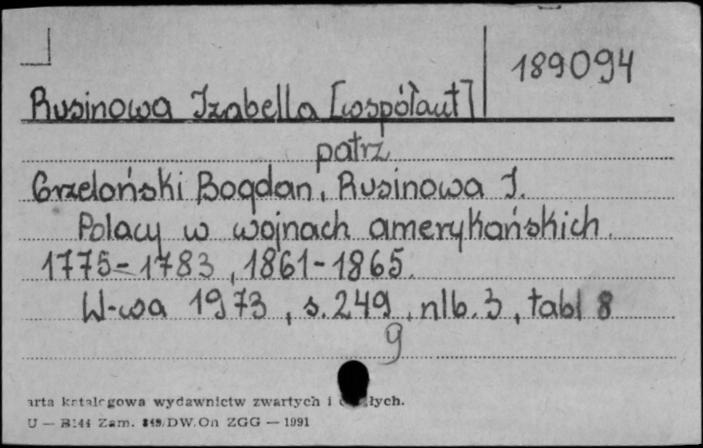 189094
Rusinowa Izabella [współaut]
patrz
Grzeloński Bogdan, Rusinowa I.
Polacy w wojnach amerykańskich.
1775-1783, 1861-1865.
W-wa 1973, s. 249, nlb. 3, tabl 8
9
arta katalogowa wydawnictw zwartych i łych.
U — B144 Zam. DW.On ZGG — 1991